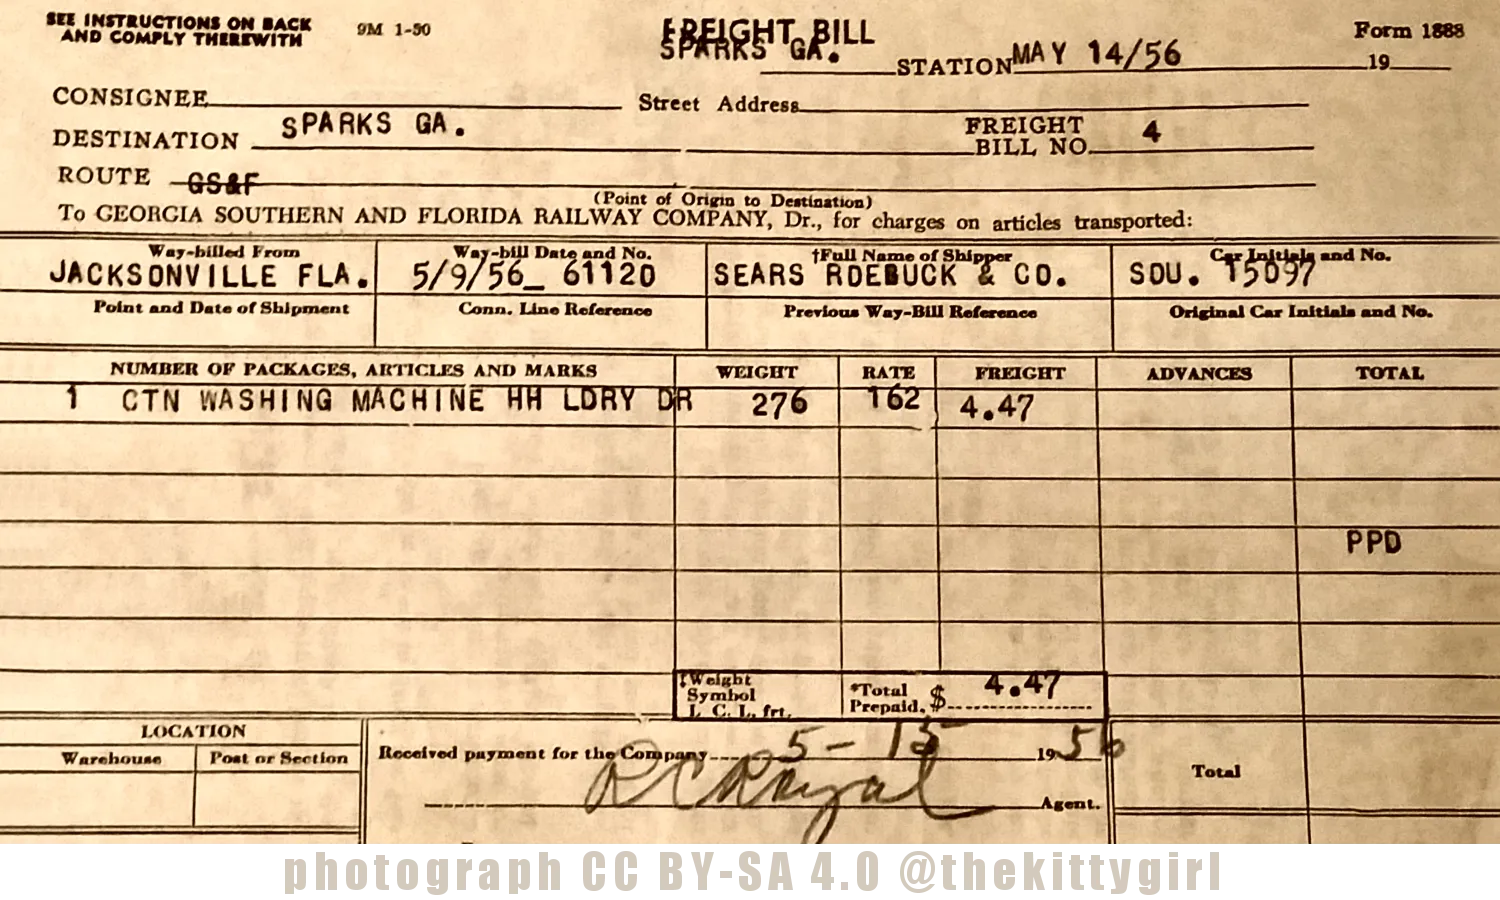 SEE INSTRUCTIONS ON BACK
AND COMPLY THEREWITH
9M 1-50
FREIGHT BILL
Form 1888
SPARKS GA. STATION MAY 14/56 19
CONSIGNEE Street Address
DESTINATION SPARKS GA. FREIGHT BILL NO. 4
ROUTE GS&F
(Point of Origin to Destination)
To GEORGIA SOUTHERN AND FLORIDA RAILWAY COMPANY, Dr., for charges on articles transported:
Way-billed From Way-bill Date and No. †Full Name of Shipper Car Initials and No.
JACKSONVILLE FLA. 5/9/56_ 61120 SEARS ROEBUCK & CO. SOU. 15097
Point and Date of Shipment Conn. Line Reference Previous Way-Bill Reference Original Car Initials and No.
NUMBER OF PACKAGES, ARTICLES AND MARKS WEIGHT RATE FREIGHT ADVANCES TOTAL
1 CTN WASHING MACHINE HH LDRY DR 276 162 4.47
PPD
‡Weight
Symbol
L. C. L. frt.
*Total
Prepaid, $ 4.47
LOCATION
Warehouse Post or Section
Received payment for the Company 5-15 1956
R C Royal Agent.
Total
photograph CC BY-SA 4.0 @thekittygirl